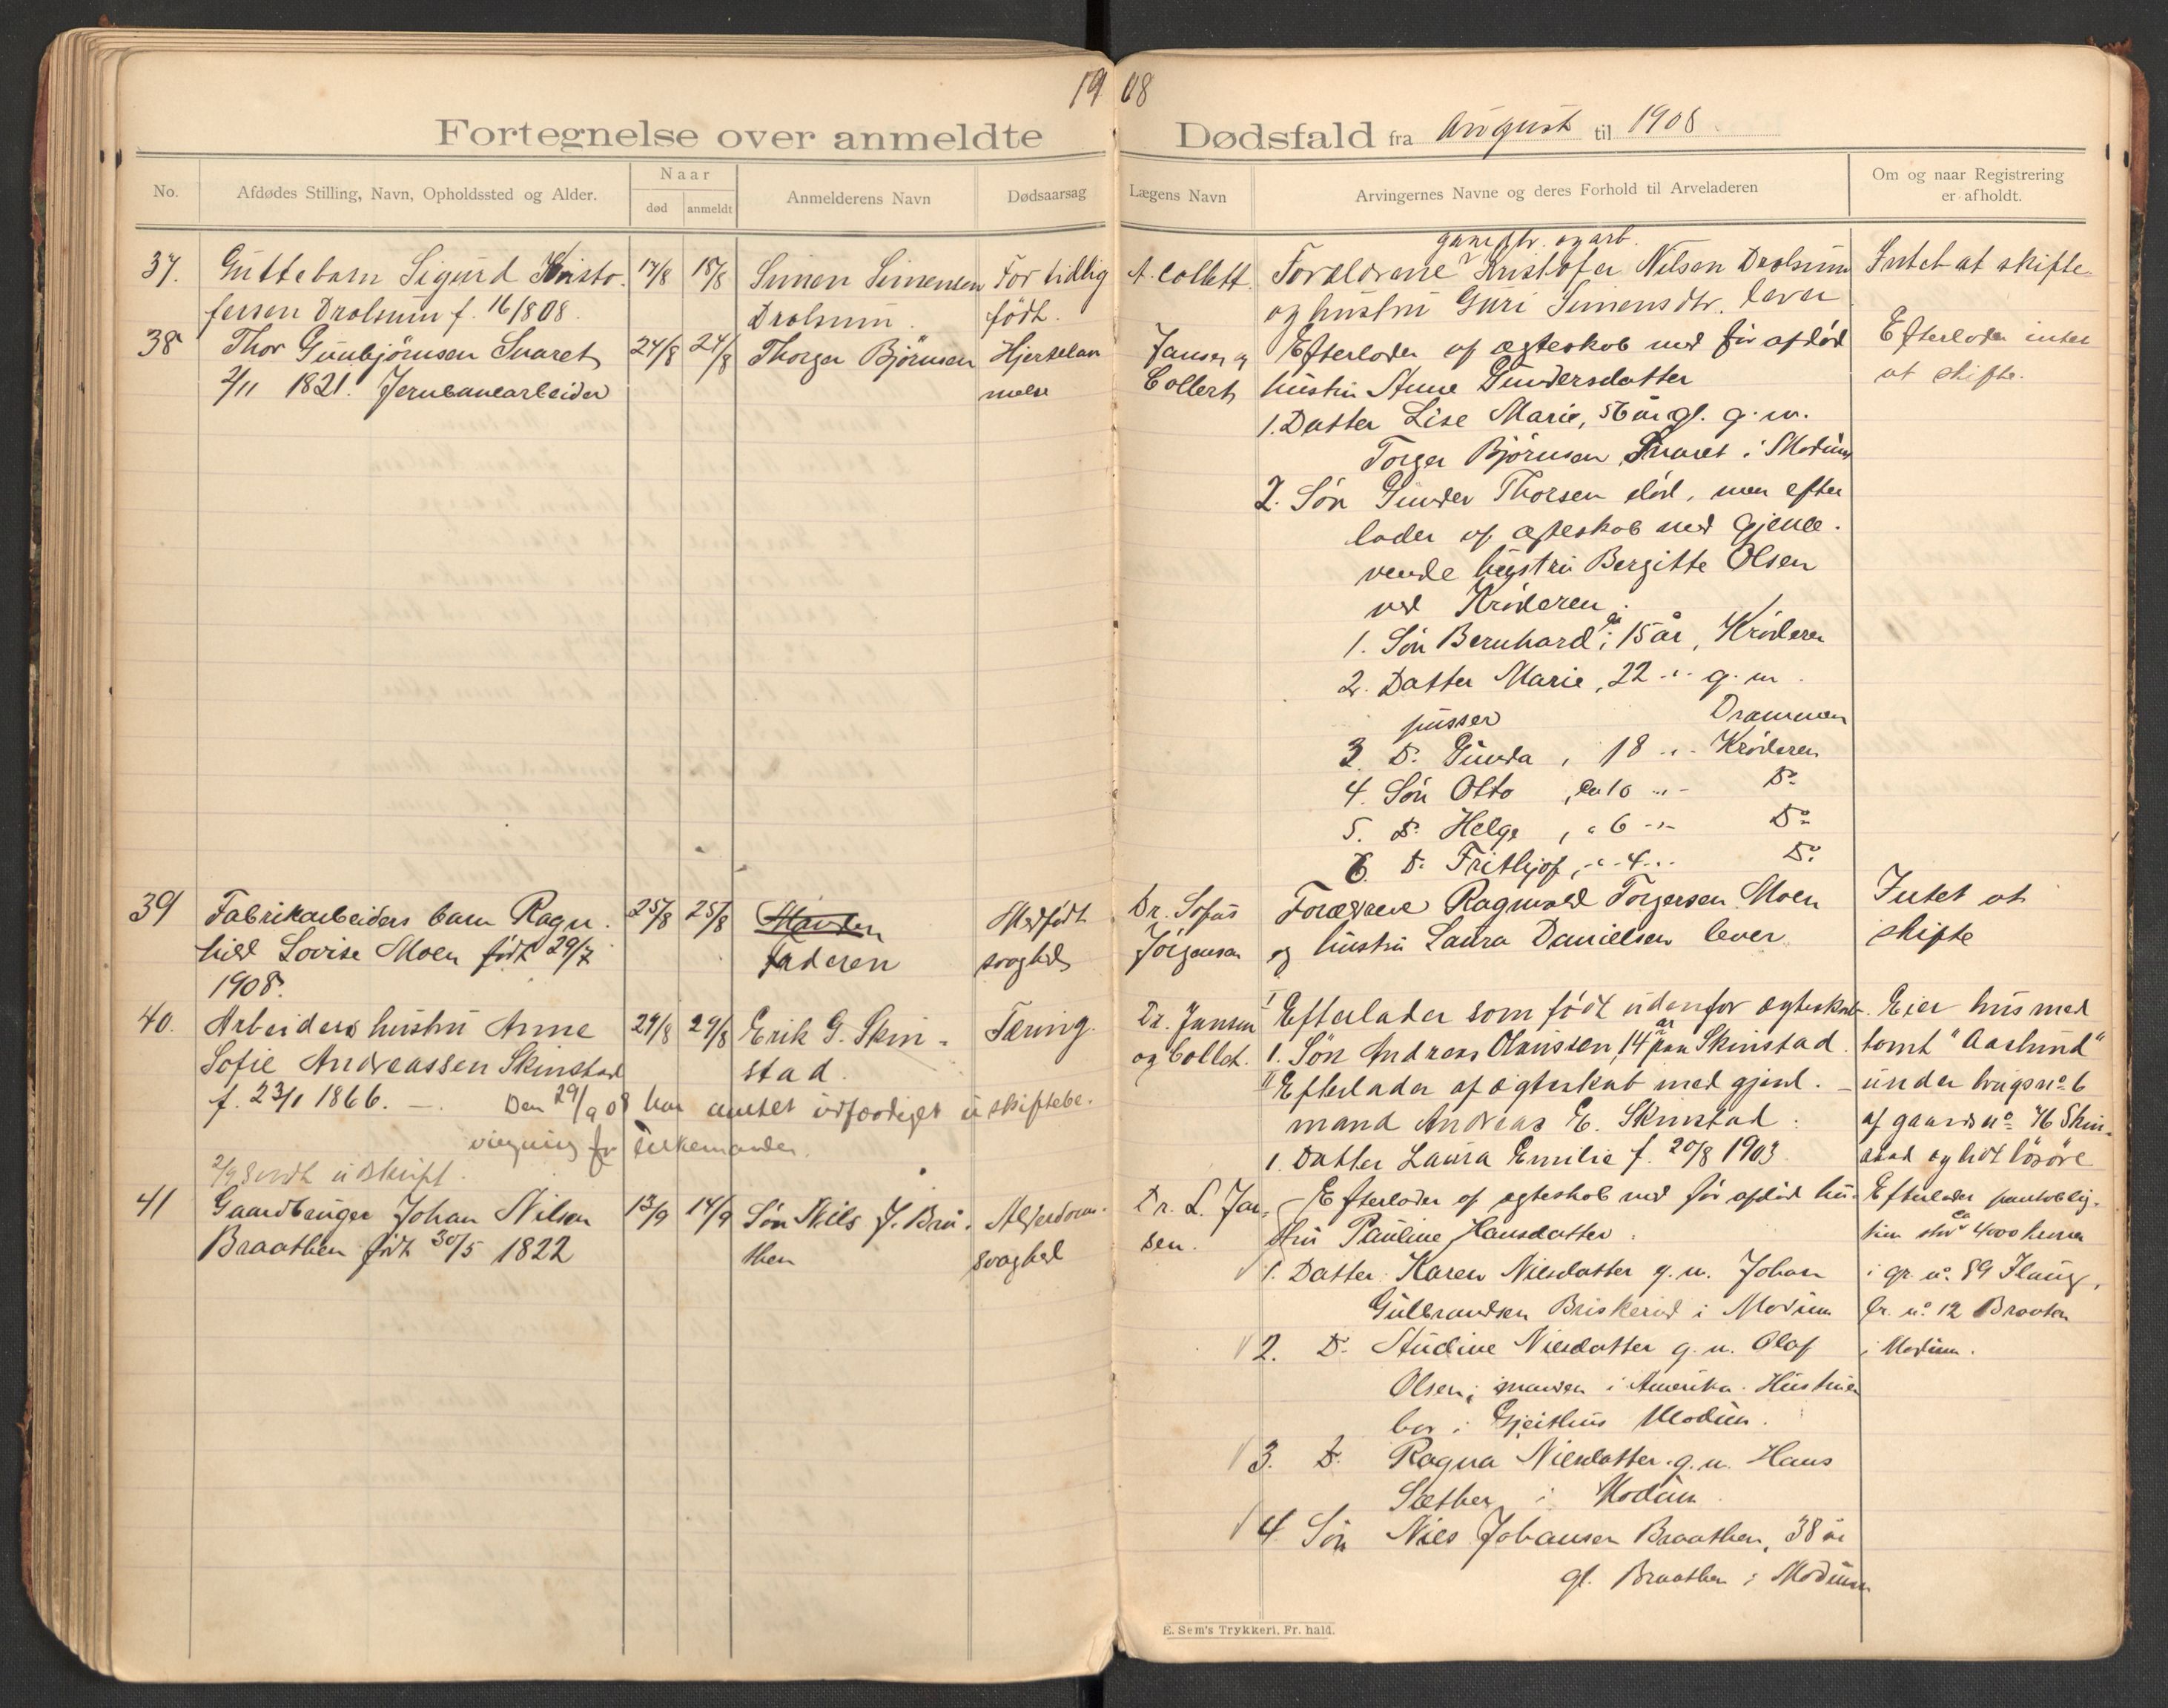 19 08
Fortegnelse over anmeldte Dødsfald fra August til 1908.
No.
Afdødes Stilling, Navn, Opholdssted og Alder.
Naar
død
anmeldt
Anmelderens Navn
Dødsaarsag
Lægens Navn
Arvingernes Navne og deres Forhold til Arveladeren
Om og naar Registrering
er afholdt.
37.
Guttebarn Sigurd Kristo-
fersen Drolsum f. 16/8 08.
17/8
18/8
Simen Simensen
Drolsum.
For tidlig
født.
A. Collett.
gaardbr. og arb.
Forældrene Kristofer Nilsen Drolsum
og hustru Guri Simensdtr. lever
Intet at skifte.
38
Thor Gunbjörnsen Snaret
2/11 1821. Jernbanearbeider
24/8
24/8
Thorger Björnsen
Hjertelam
melse
Jansen og
Collett
Efterlader af ægteskab med før afdød
hustru Anne Gundersdatter
1. Datter Lise Marie, 56 år gl. g. m.
Torger Björnsen Snaret i Modum
2. Søn Gunder Thorsen död, men efter
lader af ægteskab med gjenle-
vende hustru Bergitte Olsen
ved Kröderen.
1. Sön Bernhard, ca 15 år, Kröderen
2. Datter Marie, 22 -"- g. m.
pusser Drammen
3. Do Gunda, 18 -"- Kröderen
4. Sön Otto, ca 10 -"- Do
5. Do Helge, " 6 -"- Do
6. Do Frithjof, -"- 4 -"- Do
Efterlader intet
at skifte.
39
Fabrikarbeiders barn Ragn-
hild Lovise Moen født 29/7
1908.
25/8
25/8
Faderen
Medfødt
svaghed
Dr. Sofus
Jörgensen
Forældrene Ragnvald Torgersen Moen
og hustru Laura Danielsen lever
Intet at
skifte
40.
Arbeiders hustru Anne
Sofie Andreassen Skinstad
f. 23/1 1866. —
29/8
29/8
Erik G. Skin-
stad.
Tæring.
Den 29/9 08 har amtet udfærdiget uskiftebe-
vilgning for enkemanden.
2/9 sendt udskrift.
Dr. Jansen
og Collet.
I Efterlader som født udenfor ægteskab.
1. Søn Andreas Olaussen, 14 år paa Skinstad.
II Efterlader af ægteskab med gjenl.
mand Andreas E. Skinstad:
1. Datter Laura Emilie f. 20/8 1903
Eier hus med
tomt "Aaslund"
under brugsno. 6
af gaardsno. 76 Skin-
stad og lidt løsøre
41
Gaardbruger Johan Nilsen
Braathen født 30/5 1822
13/9
14/9
Søn Nils J. Bra-
then
Alderdoms-
svaghed
Dr. L. Jan-
sen.
Efterlader af ægteskab med før afdød hu-
stru Pauline Hansdatter:
1. Datter Karen Nilsdatter g. m. Johan
Gulbrandsen Briskerud i Modum
2. Do Nilsdatter g. m. Olaf
Olsen; manden i Amerika. Hustruen
bor i Gjeithus Modum.
3. Do Ragna Nilsdatter g. m. Hans
Sæther i Modum.
4 Sön Nils Johansen Braathen, 38 år
gl. Braathen i Modum
Efterlader pantoblig-
tion stor ca 4000 kroner
i gr. no. 89
br. no. 12 Braaten
i Modum.
E. Sem's Trykkeri, Fr. hald.